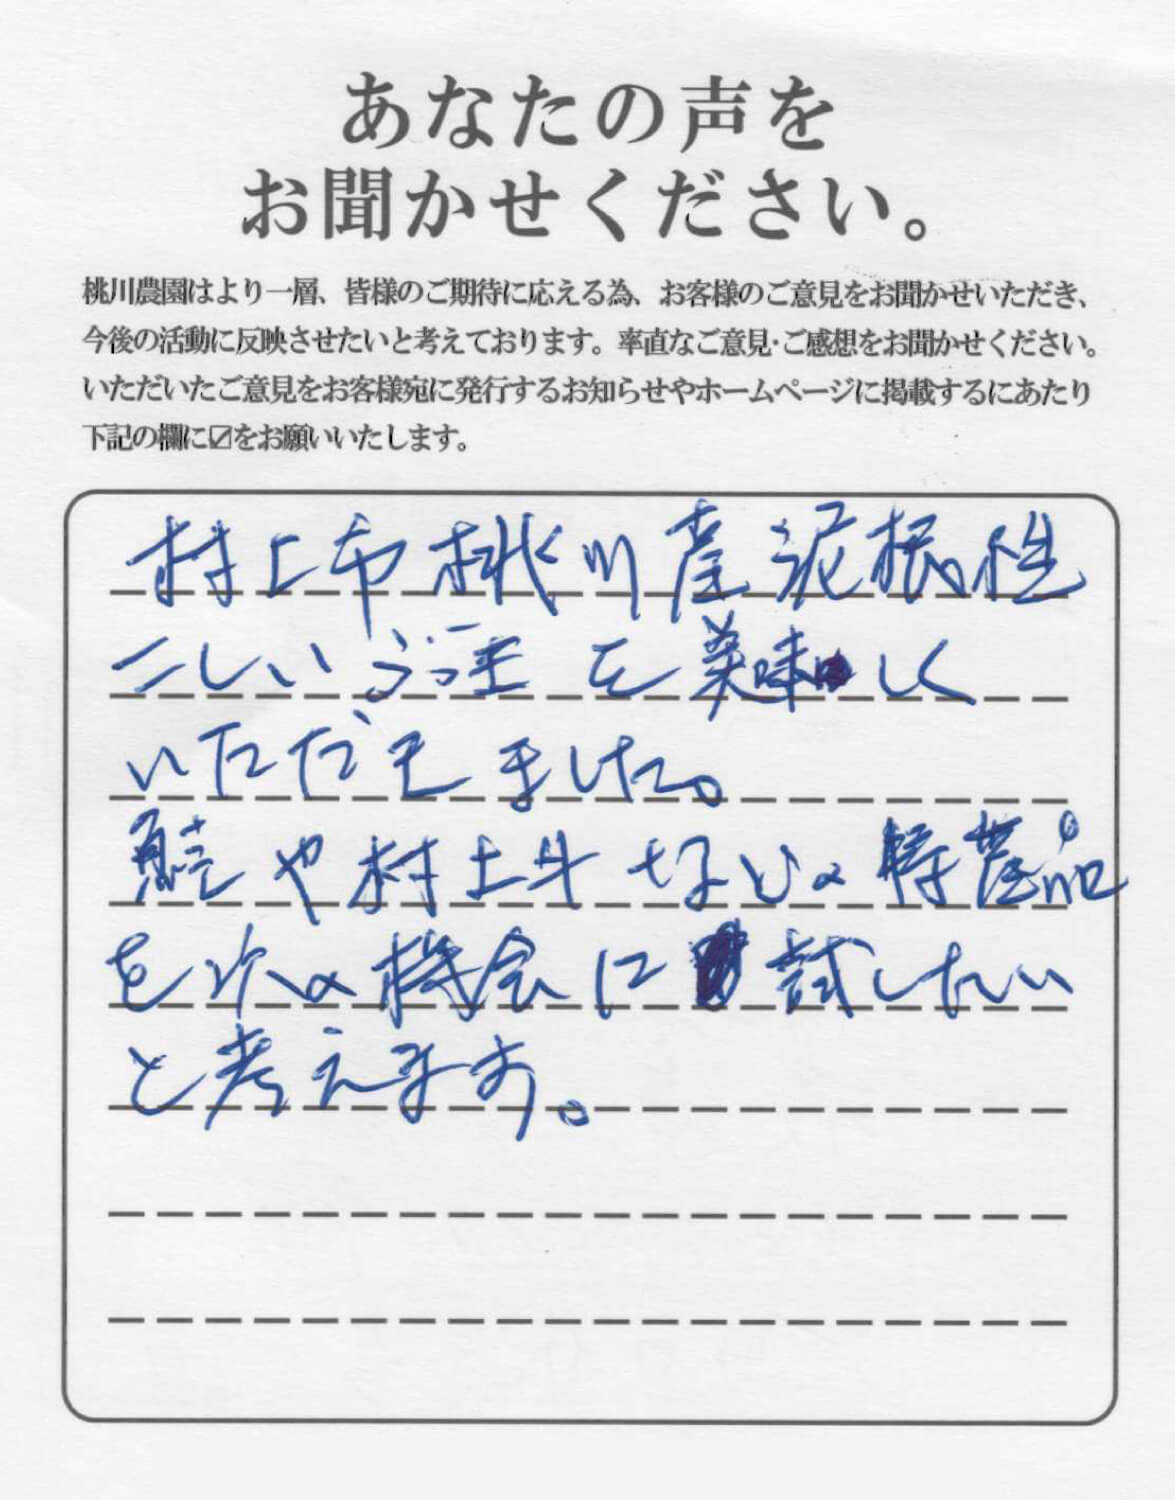 あなたの声を
お聞かせください。
桃川農園はより一層、皆様のご期待に応える為、お客様のご意見をお聞かせいただき、
今後の活動に反映させたいと考えております。率直なご意見・ご感想をお聞かせください。
いただいたご意見をお客様宛に発行するお知らせやホームページに掲載するにあたり
下記の欄に☑をお願いいたします。
村上市桃川産泥根性
こしいぶ を美味しく
いただきました。
鮭や村上牛などの特産品
を次の機会に試したい
と考えます。